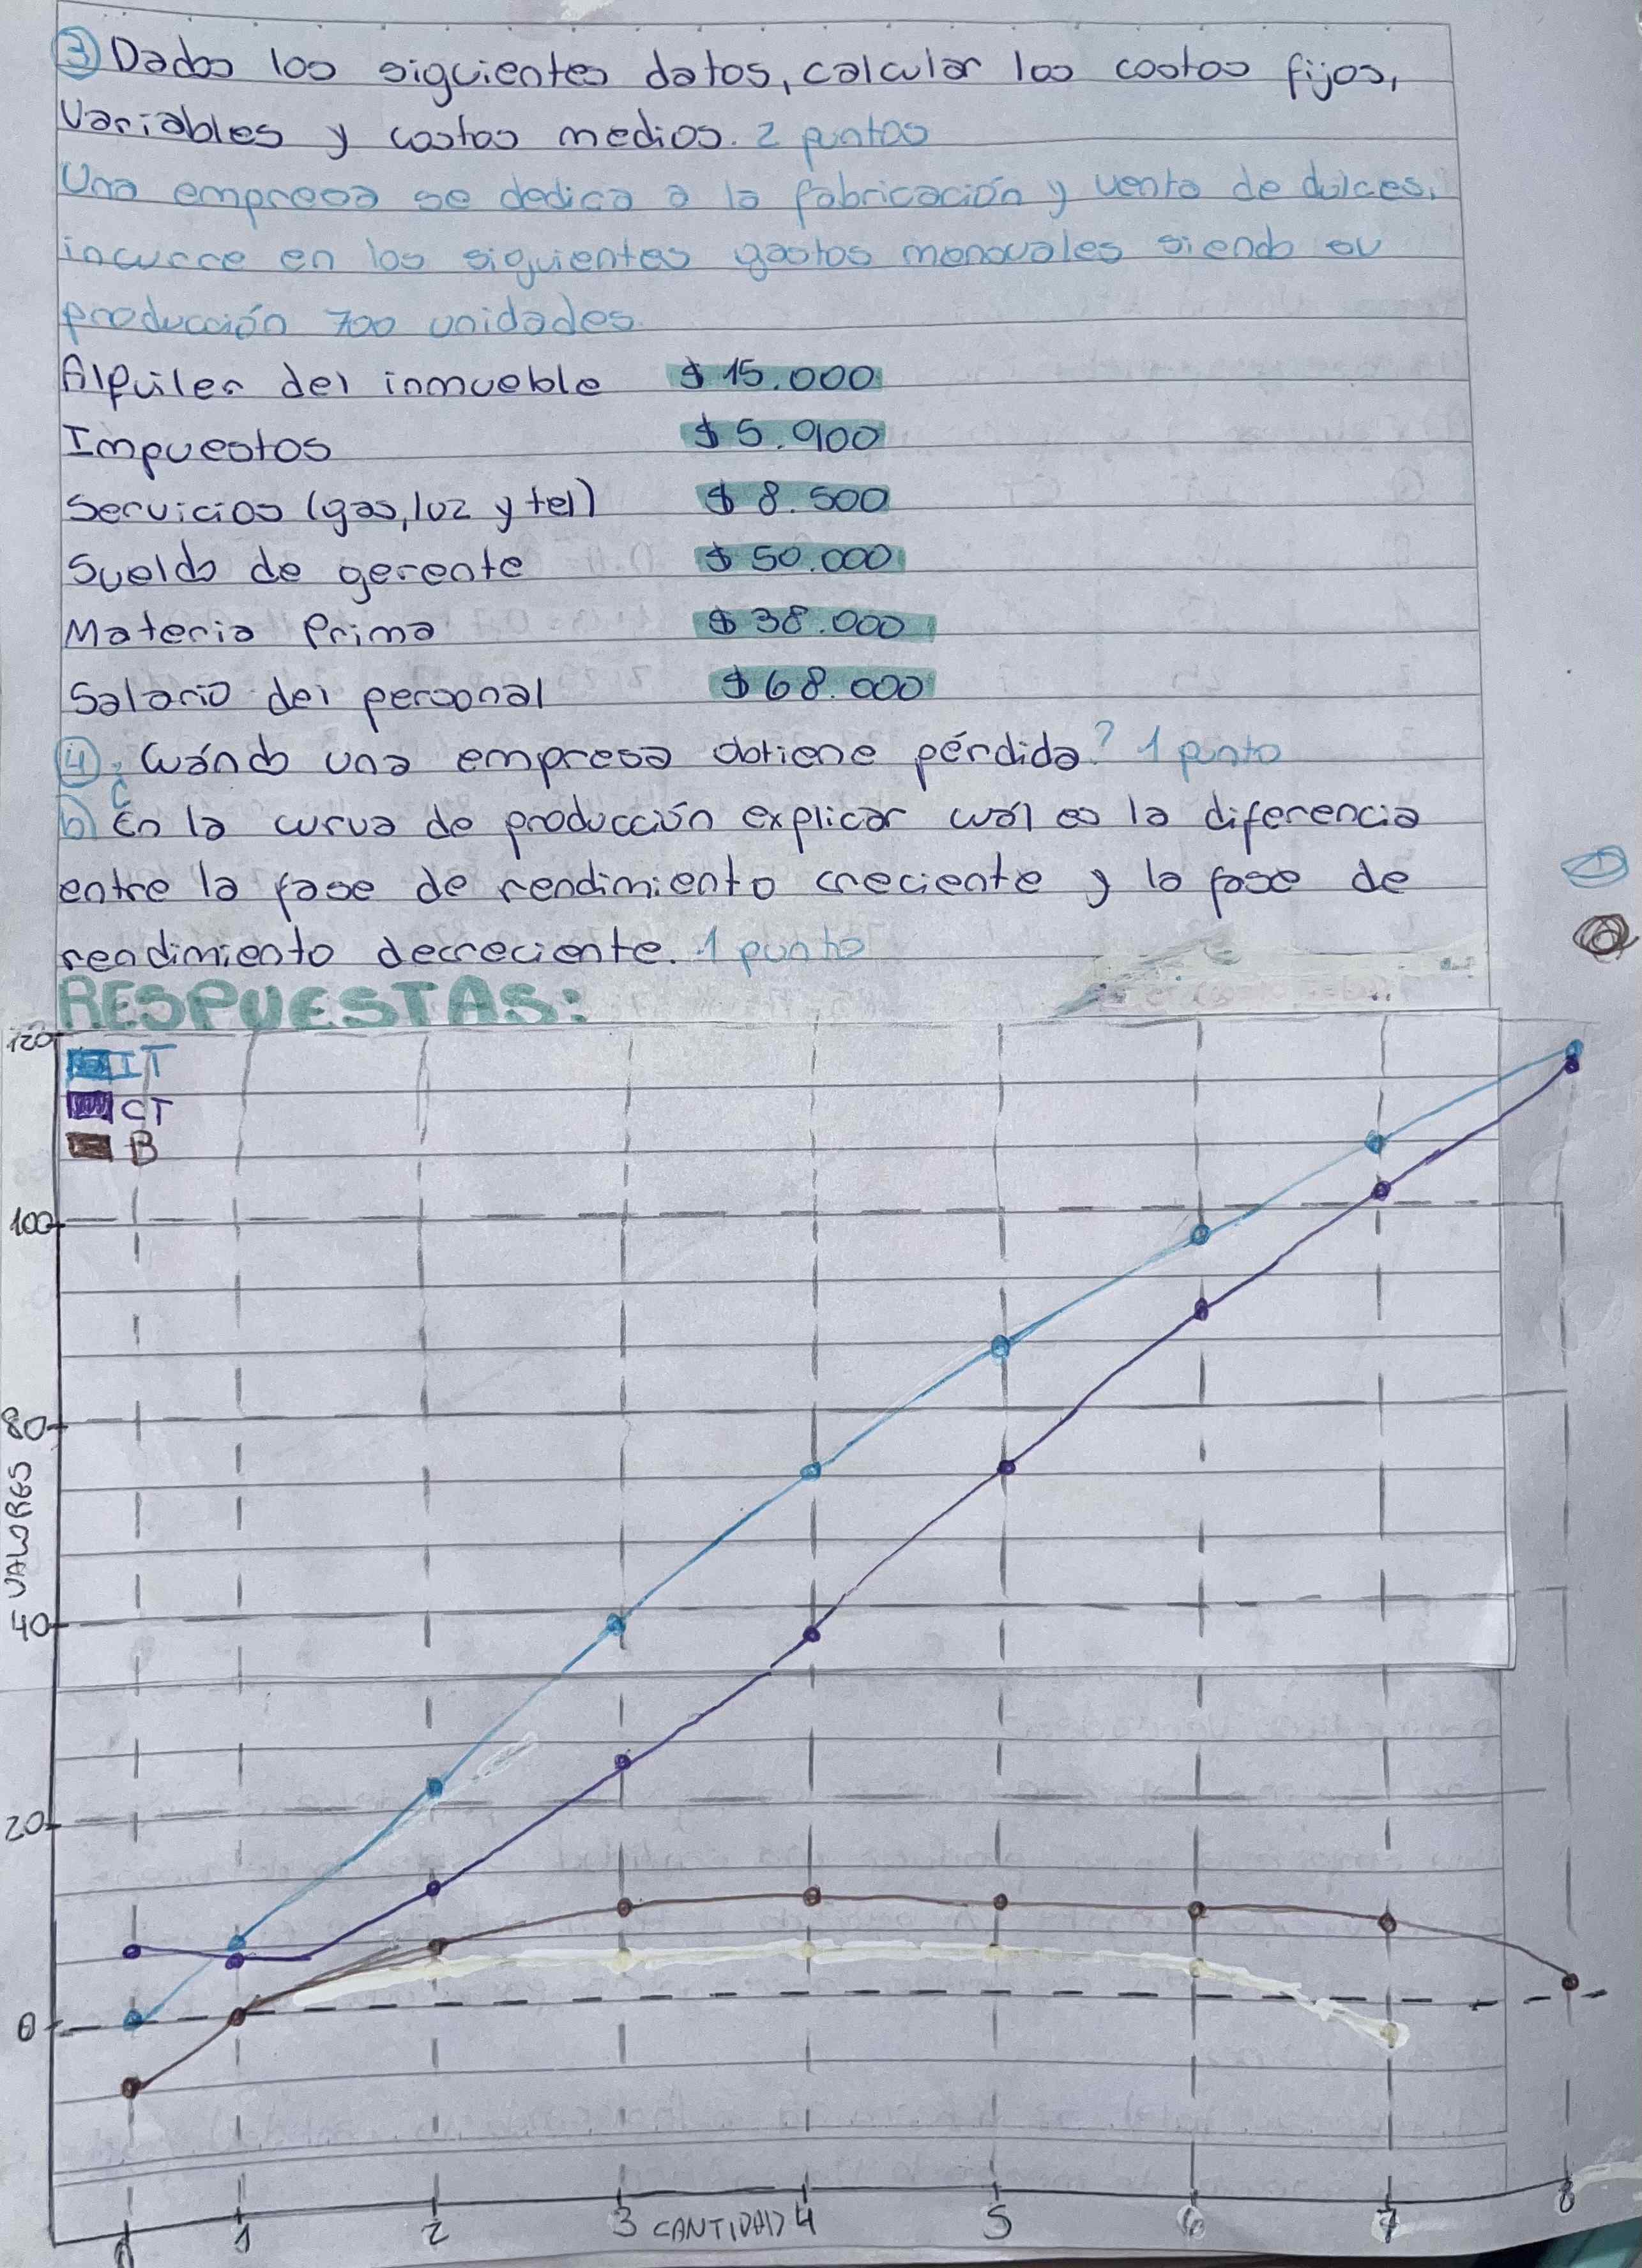 ③ Dados los siguientes datos, calcular los costos fijos,
Variables y costos medios. 2 puntos
Una empresa se dedica a la fabricación y venta de dulces,
incurre en los siguientes gastos mensuales siendo su
producción 700 unidades.
Alquiler del inmueble $ 15.000
Impuestos $ 5.900
Servicios (gas, luz y tel) $ 8.500
Sueldo de gerente $ 50.000
Materia Prima $ 38.000
Salario del personal $ 68.000
④ ¿Cuándo una empresa obtiene pérdida? 1 punto
b) En la curva de producción explicar cuál es la diferencia
entre la fase de rendimiento creciente y la fase de
rendimiento decreciente. 1 punto
RESPUESTAS:
120
IT
CT
B
100
80
VALORES
40
20
0
1 2 3 CANTIDAD 4 5 6 7 8